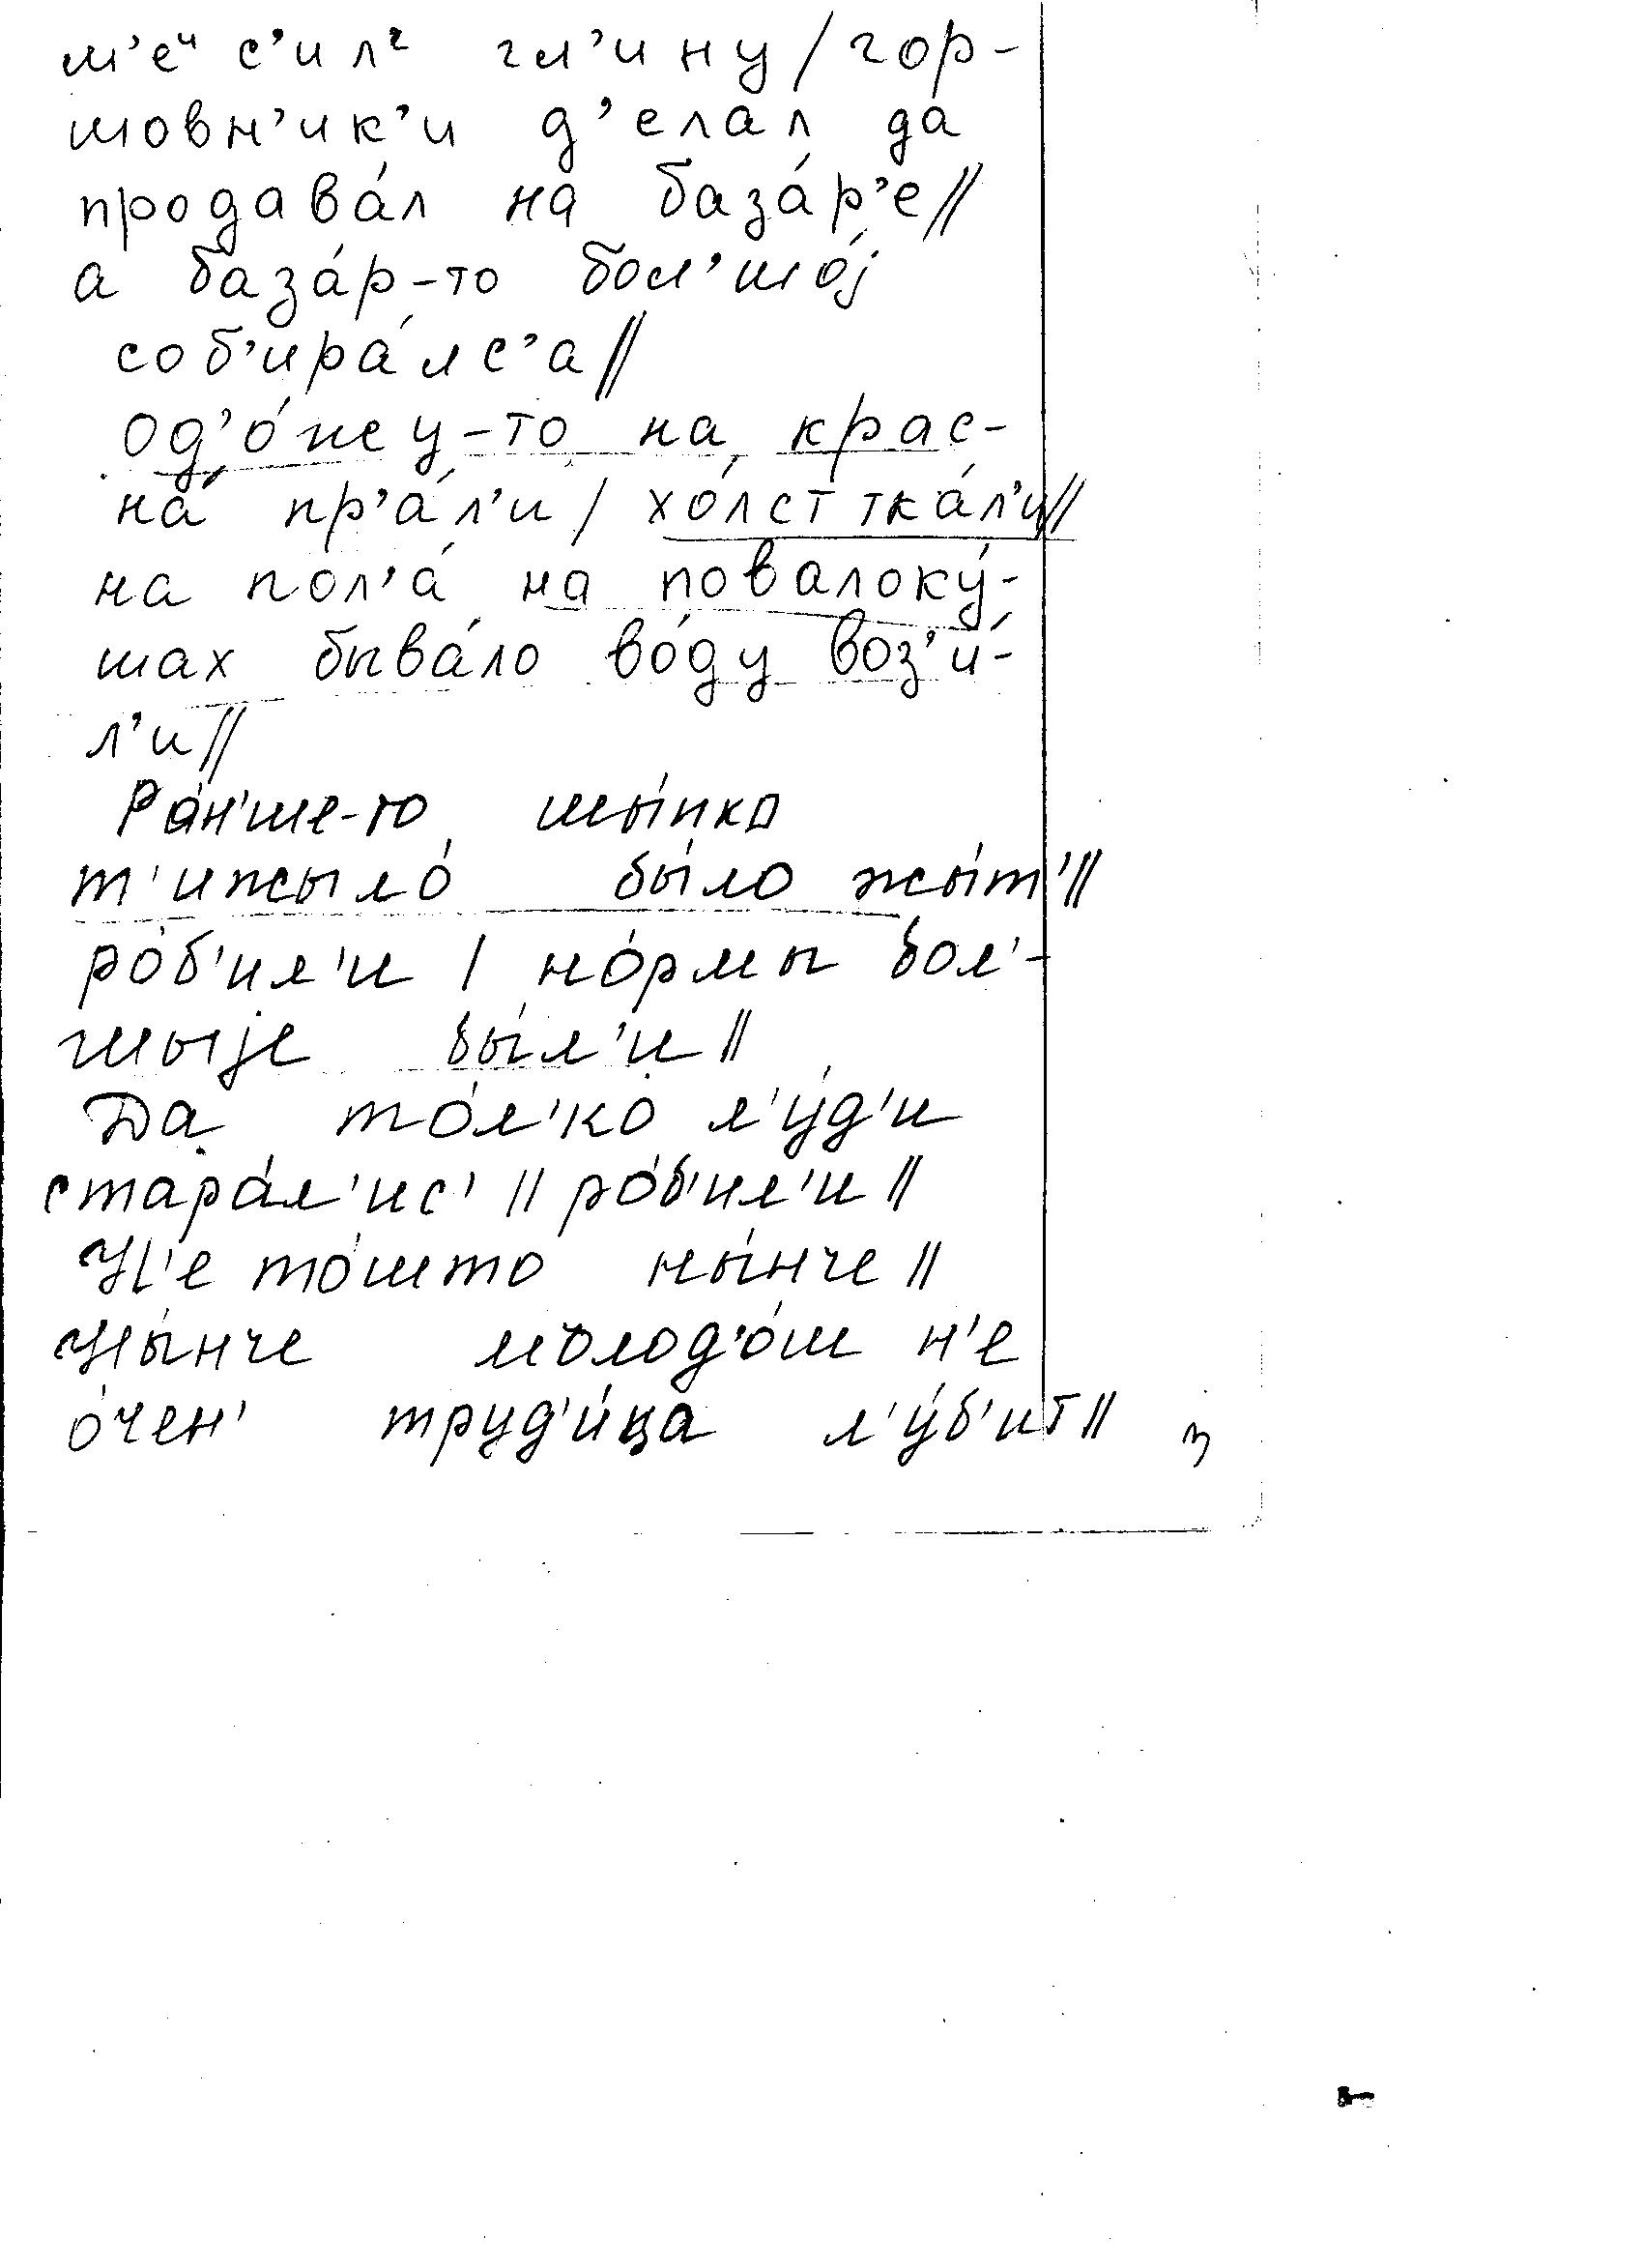 м'еи с'ил г гл'ину / гор-
шовн'ик'и д'елал да
продава́л на база́р'е //
а база́р-то бол'шо́j
соб'ира́лс'а //
од'о́жу-то на крас-
на́ пр'а́л'и / хо́лст тка́л'и //
на пол'а́ на повалоку́-
шах быва́ло во́ду воз'и́-
л'и //
Ра́н'ше-то шы́пко
т'ижыло́ бы́ло жы́т' //
ро́б'ил'и / но́рмы бол'-
шыjе бы́л'и //
Да то́л'ко л'у́д'и
стара́л'ис' // ро́б'ил'и //
Н'е то́што ны́нче //
Ны́нче молод'о́ш н'е
о́чен' труд'и́ца л'у́б'ит //